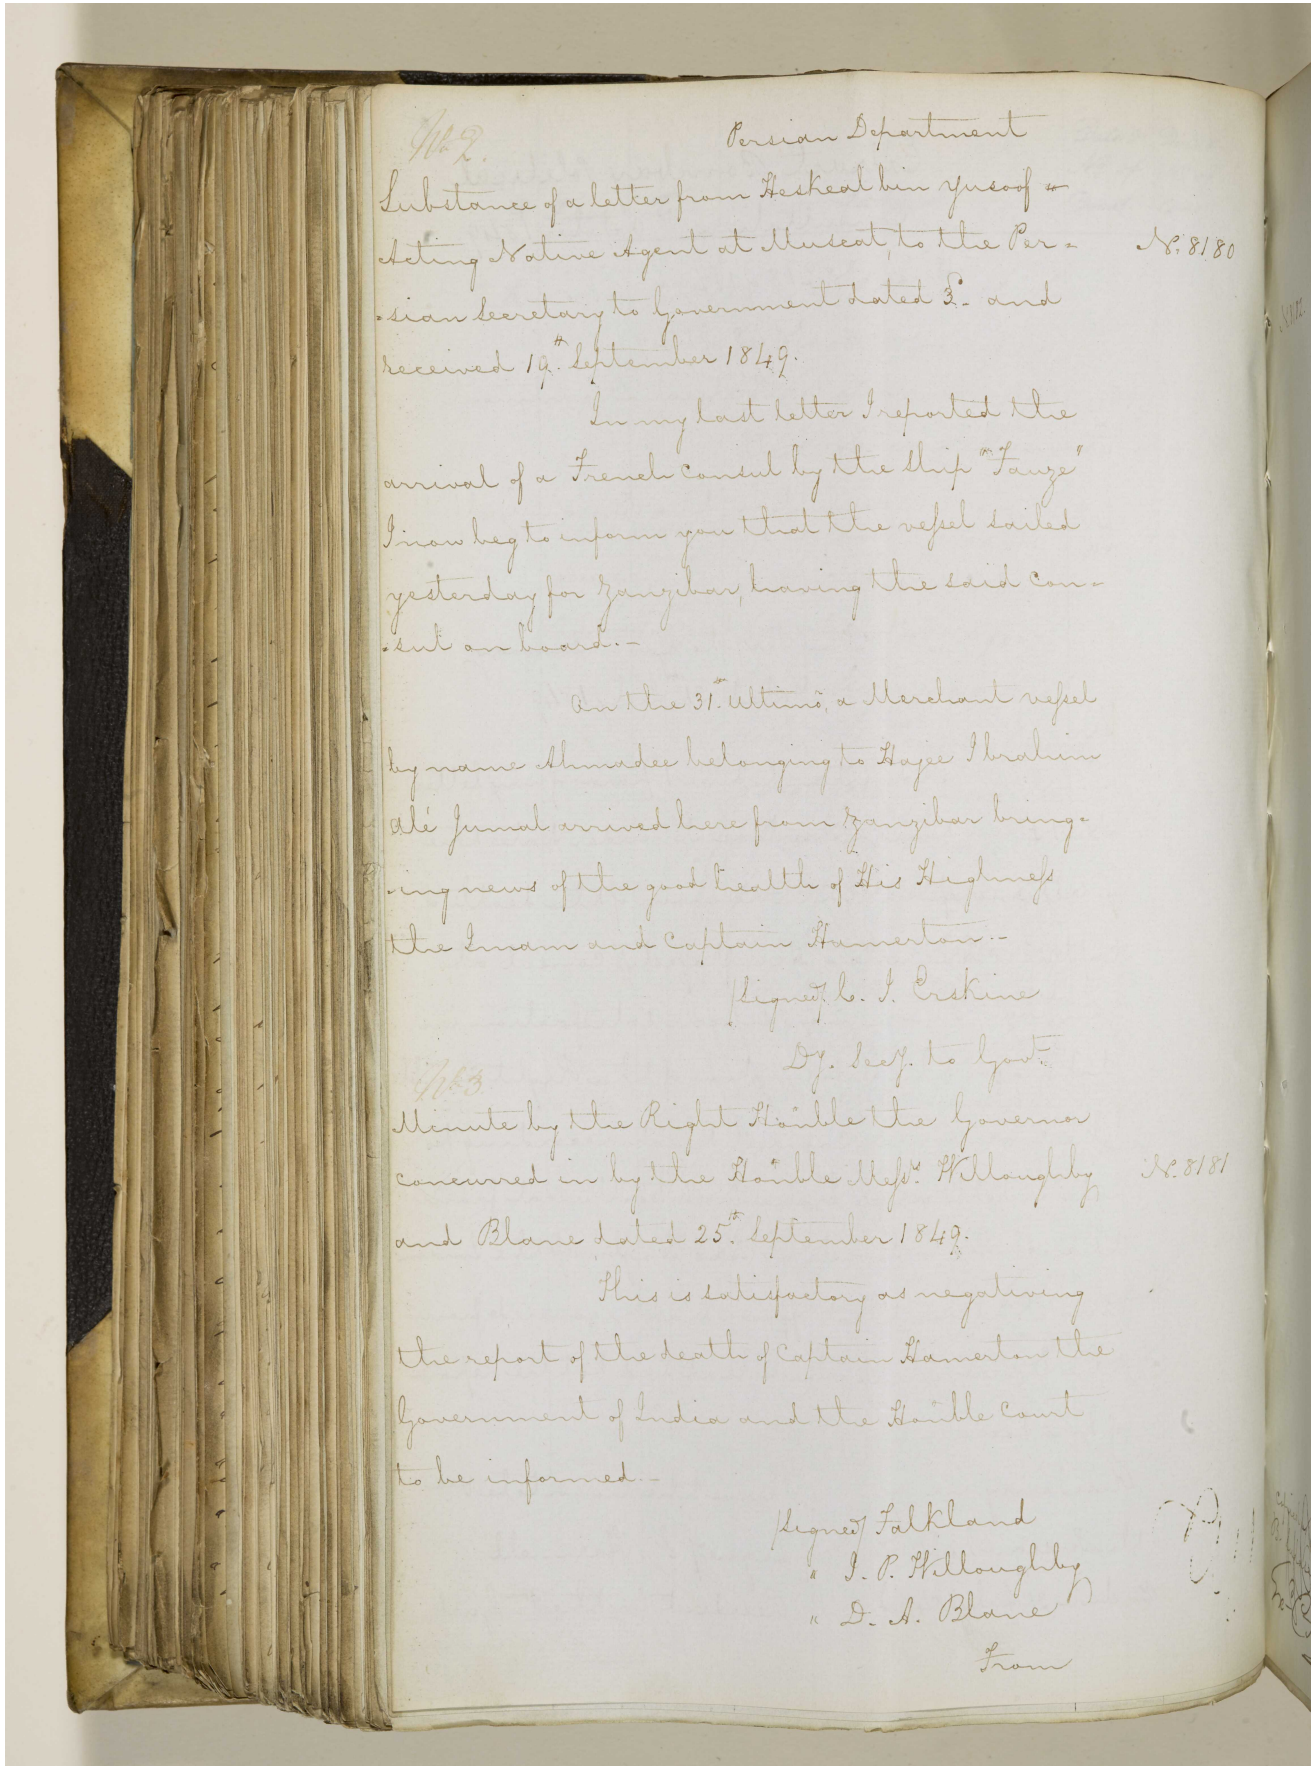 No 2.
Persian Department
Substance of a letter from Heskeal bin Yusoof
Acting Native Agent at Muscat, to the Per= No. 8180
=sian Secretary to Government dated 3d. and
received 19th September 1849.
In my last letter I reported the
arrival of a French Consul by the Ship "Fauze"
I now beg to inform you that the vessel sailed
yesterday for Zanzibar, having the said Con=
=sul on board.—
On the 31st. Ultimo, a Merchant vessel
by name Ahmadee belonging to Hajee Ibrahim
Alé Jumal arrived here from Zanzibar bring=
=ing news of the good health of His Highness
the Imam and Captain Hamerton.—
/Signed/ C. J. Erskine
Dy. Secy. to Govt.
No 3
Minute by the Right Honble the Governor
concurred in by the Honble Messrs. Willoughby No. 8181
and Blane dated 25th. September 1849.
This is satisfactory as negativing
the report of the death of Captain Hamerton the
Government of India and the Honble Court
to be informed.—
/Signed/ Falkland
" J. P. Willoughby
" D. A. Blane
From